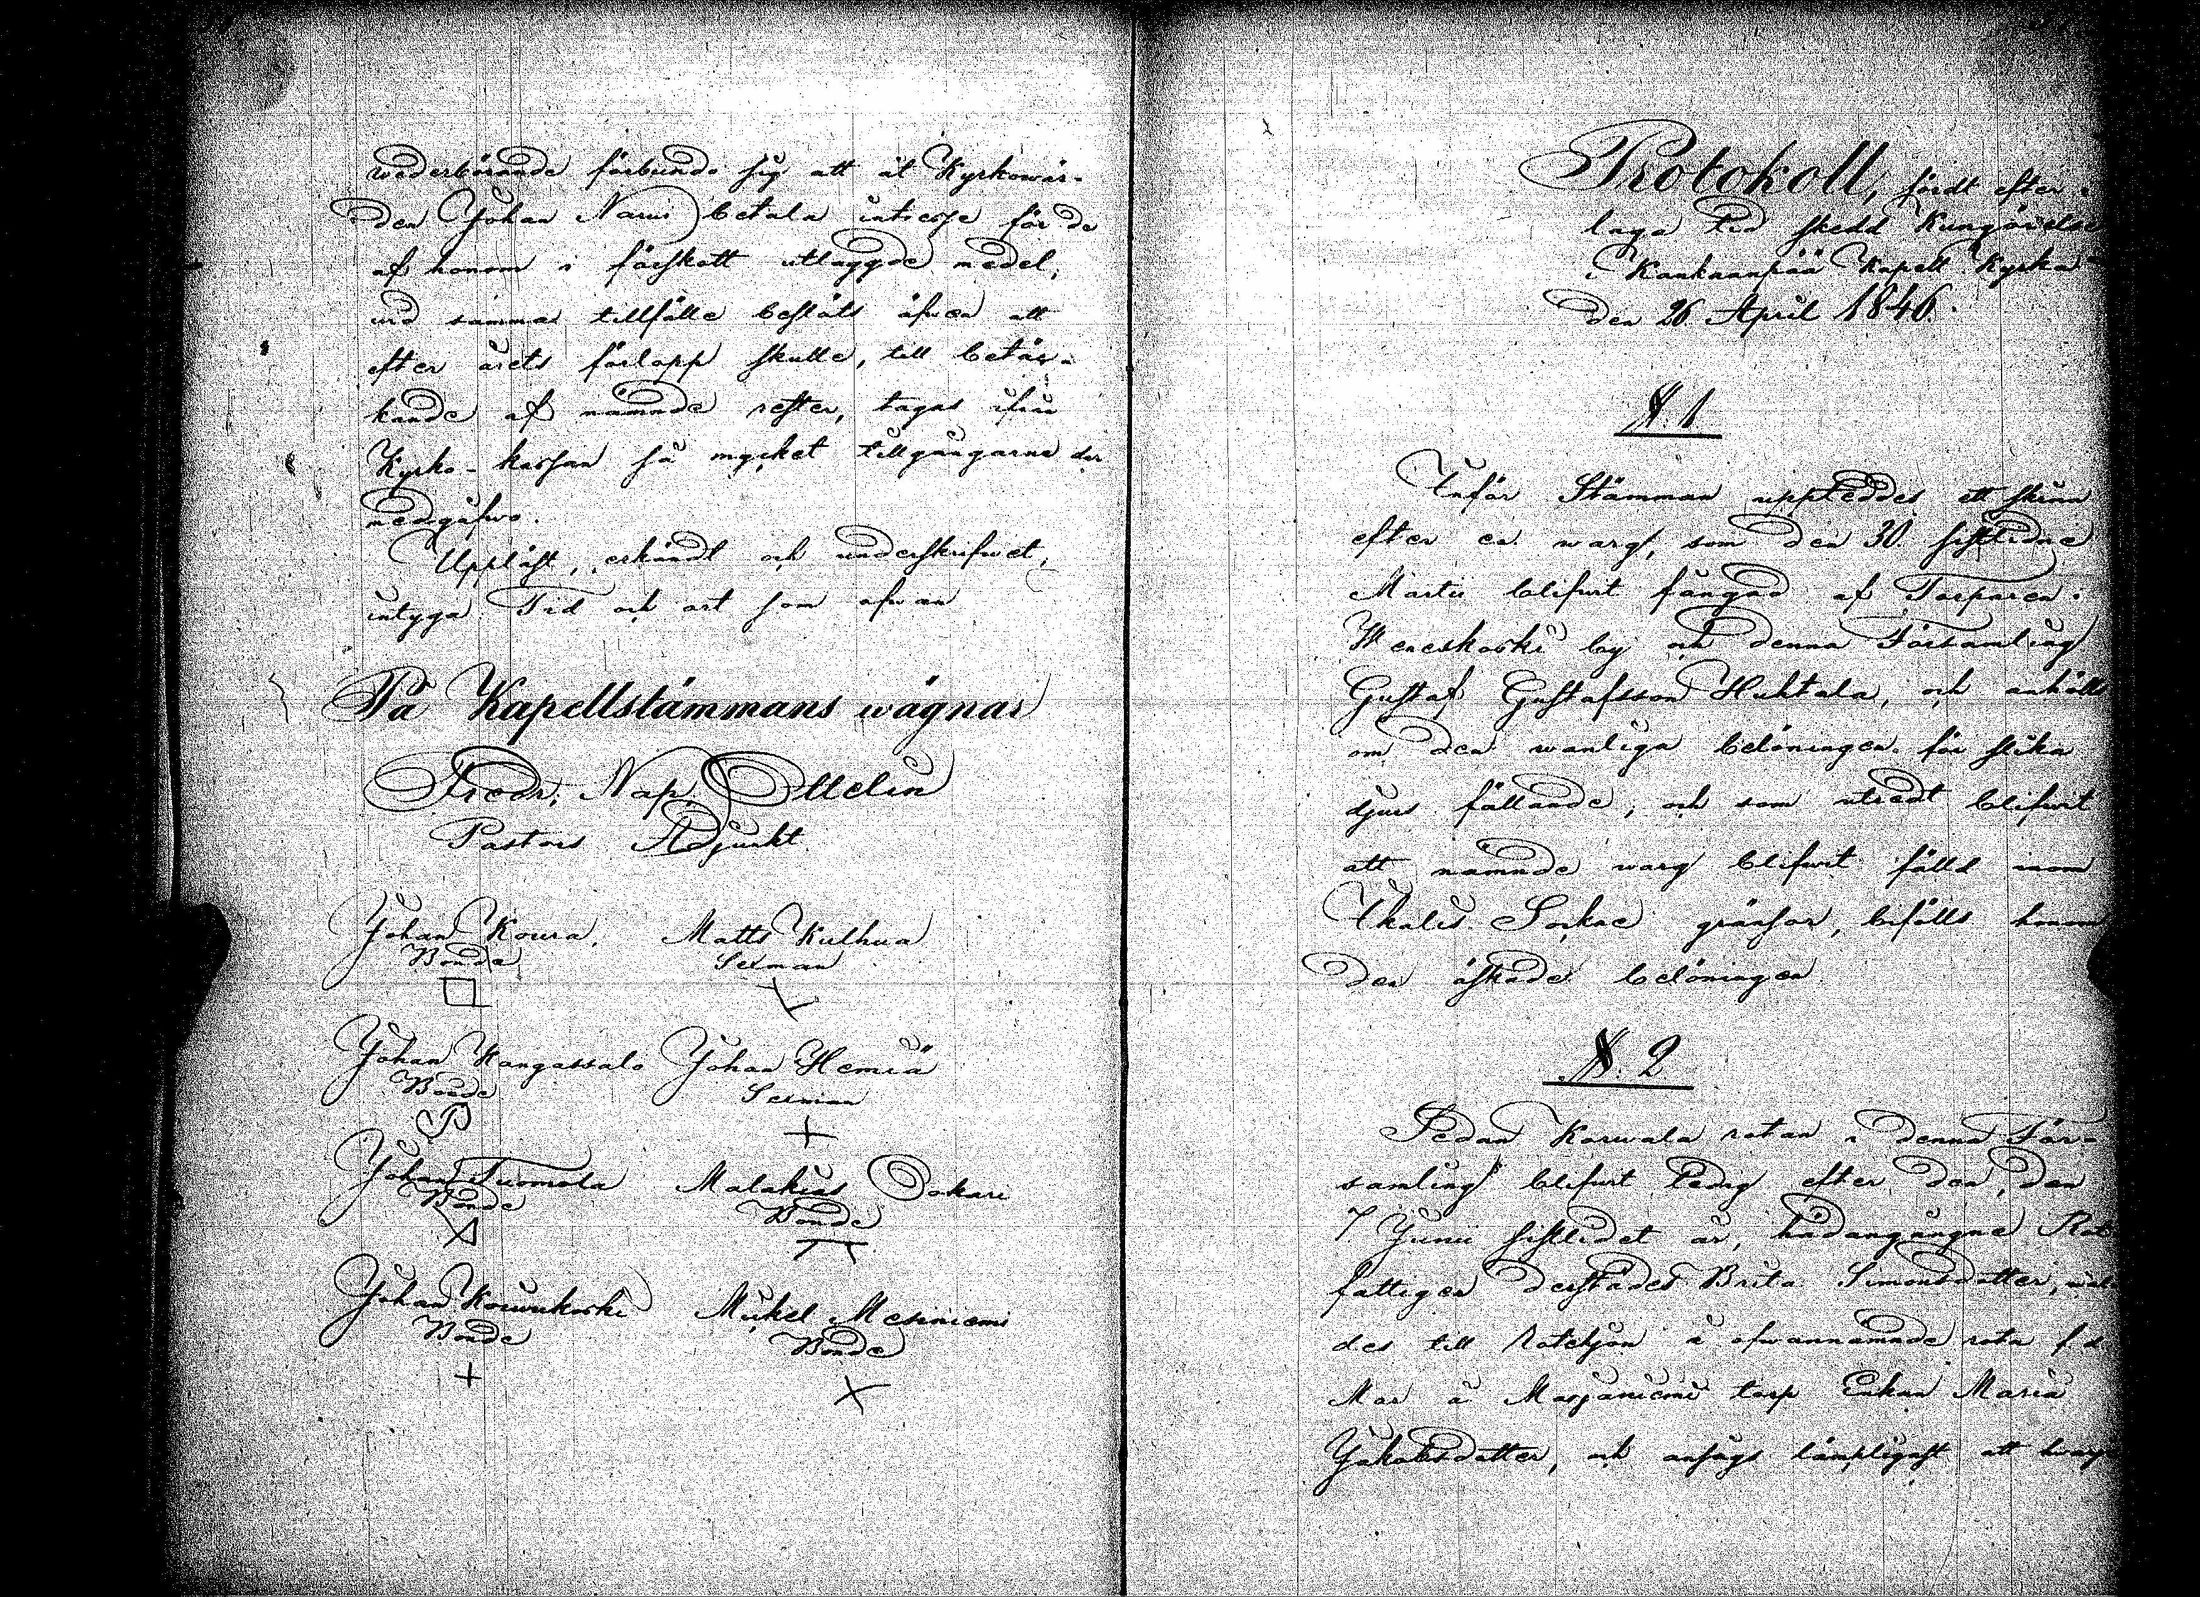 wederbörande förbundo sig att åt Kyrkowär-
den Johan Narwi betala intresse för de
af honom i förskott utlaggde medel;
wid samma tillfälle beslöts äfwen att
efter årets förlopp skulle, till betäc-
kande af nämnde rester, tagas ifrån
Kyrko-kassan så mycket tillgångarne der
medgåfwo.
Uppläst, erkändt och underskrifwet,
intyga Tid och ort som ofwan
På Kapellstämmans wägnar
Fredr. Nap. Ottelin
Pastors Adjunkt.
Johan Koura, Matts Kulhua
Bonde Sexman
Johan Kangassalo Johan Hemiä
Bonde Sexman
Johan Tuomola Malakias Ojakari
Bonde Bonde
Johan Kouwukoski Mickel Mesiniemi
Bonde Bonde
Protokoll, fördt efter i
laga tid skedd Kungörelse
i Kankaanpää Kapell Kyrka
den 26 April 1846.
N. 1
Inför Stämman uppteddes ett skinn
efter en warg, som den 30 sistlidne
Martii blifwit fångad af Torparen i
Weneskoski by och denna Församling
Gustaf Gustafsson Huhtala, och anhölls
om den wanliga belöningen för slika
djurs fällande; och som utredt blifwit
att nämnde warg blifwit fälld inom
Ikalis Sockne gränsor, bifölls honom
den äskade belöningen
N. 2
Sedan Karwala rotan i denna För-
samling blifwit ledig efter den, den
7 Junii sistlidet år, hädangångne Rot
fattigen derstädes Brita Simonsdotter,
des till Rotehjon å ofwannämnde rota f.d.
Mor å Marjaniemi torp Enkan Maria
Jakobsdotter, och ansågs lämpligast att